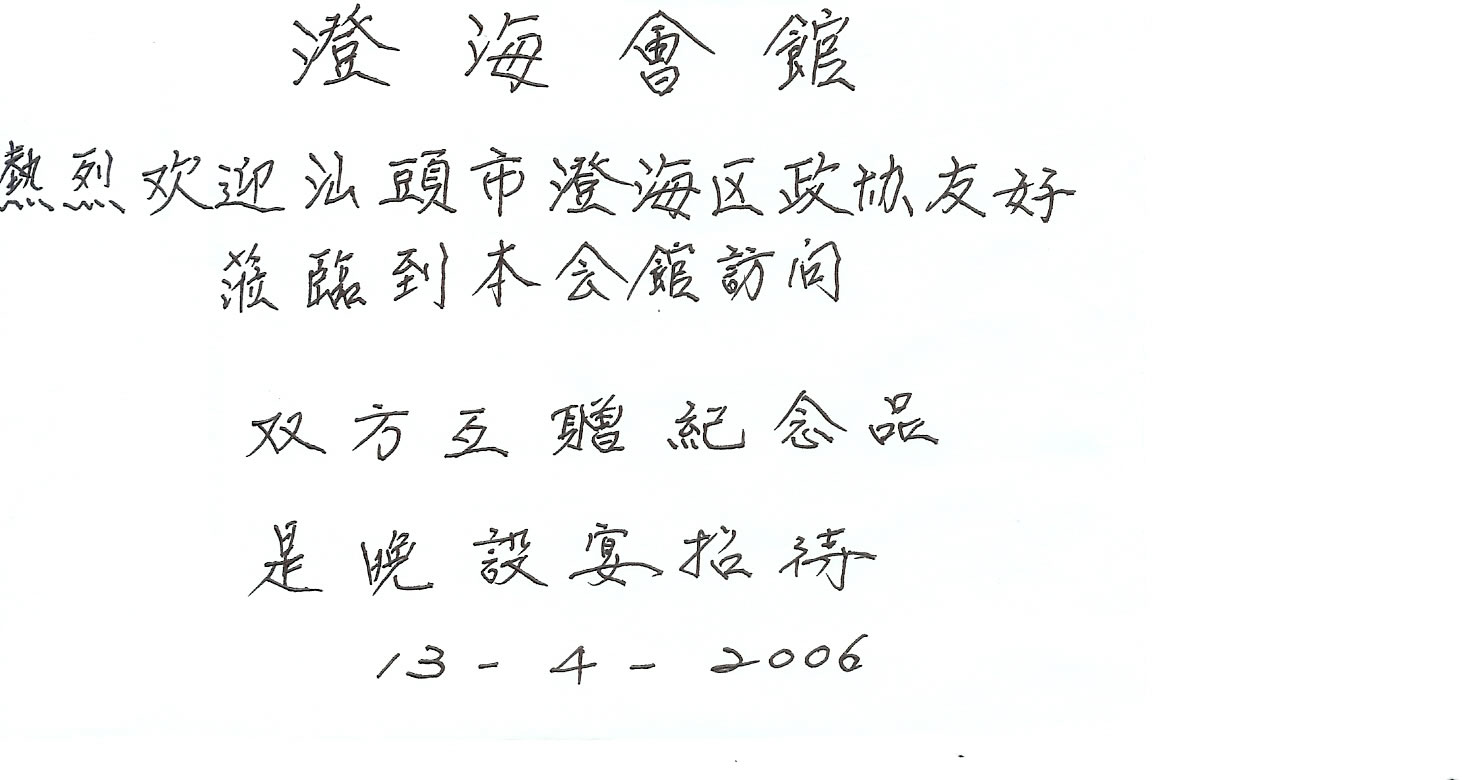 澄海會館
熱烈欢迎汕頭市澄海区政协友好
蒞臨到本会館訪问
双方互贈紀念品
是晚設宴招待
13-4-2006